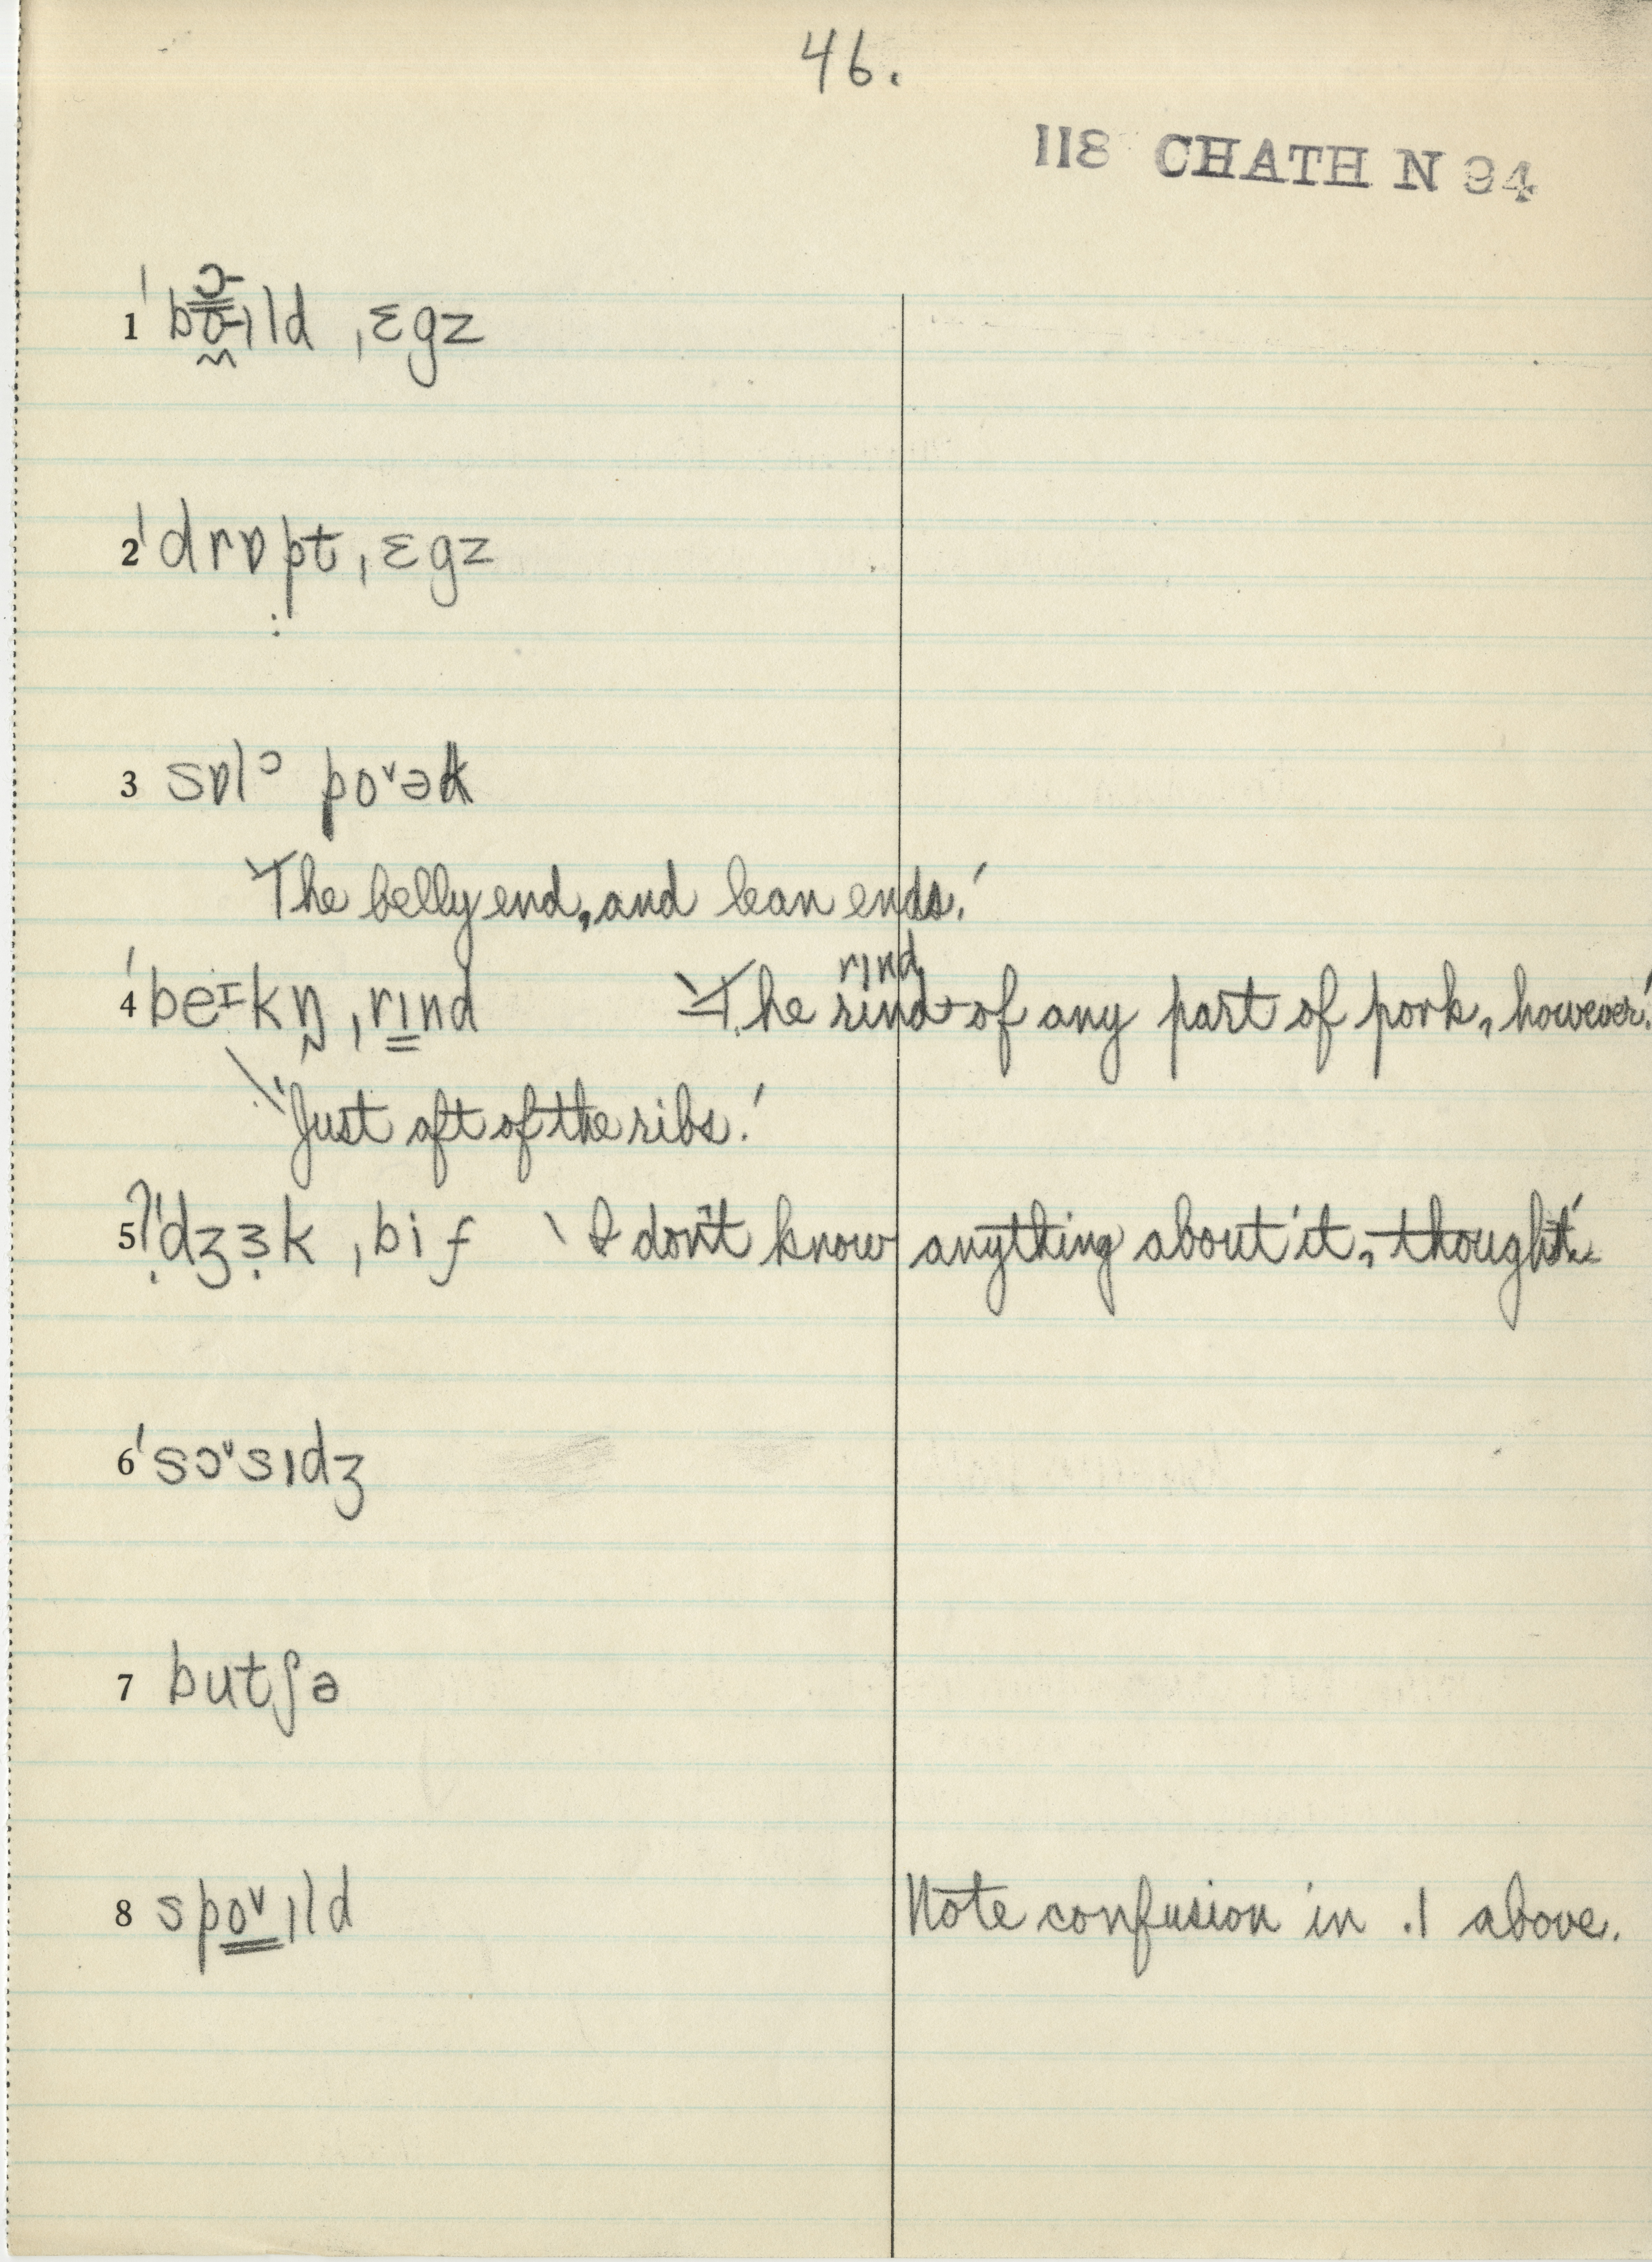 46.
118 CHATH N 94
1 ˈbɔɪld ˌɛgz
2 ˈdrɒpt ˌɛgz
3 sɒlᵓ poˇək
'The belly end, and lean ends.'
rɪnd
4 ˈbeɪkŋ ˌrɪnd 'The rind of any part of pork, however.'
'Just aft of the ribs.'
5 ?ˈdʒɜk ˌbif 'I don't know anything about it, though.'
6 ˈsɔˇsɪdʒ
7 butʃə
8 spoˇɪld Note confusion in .1 above.